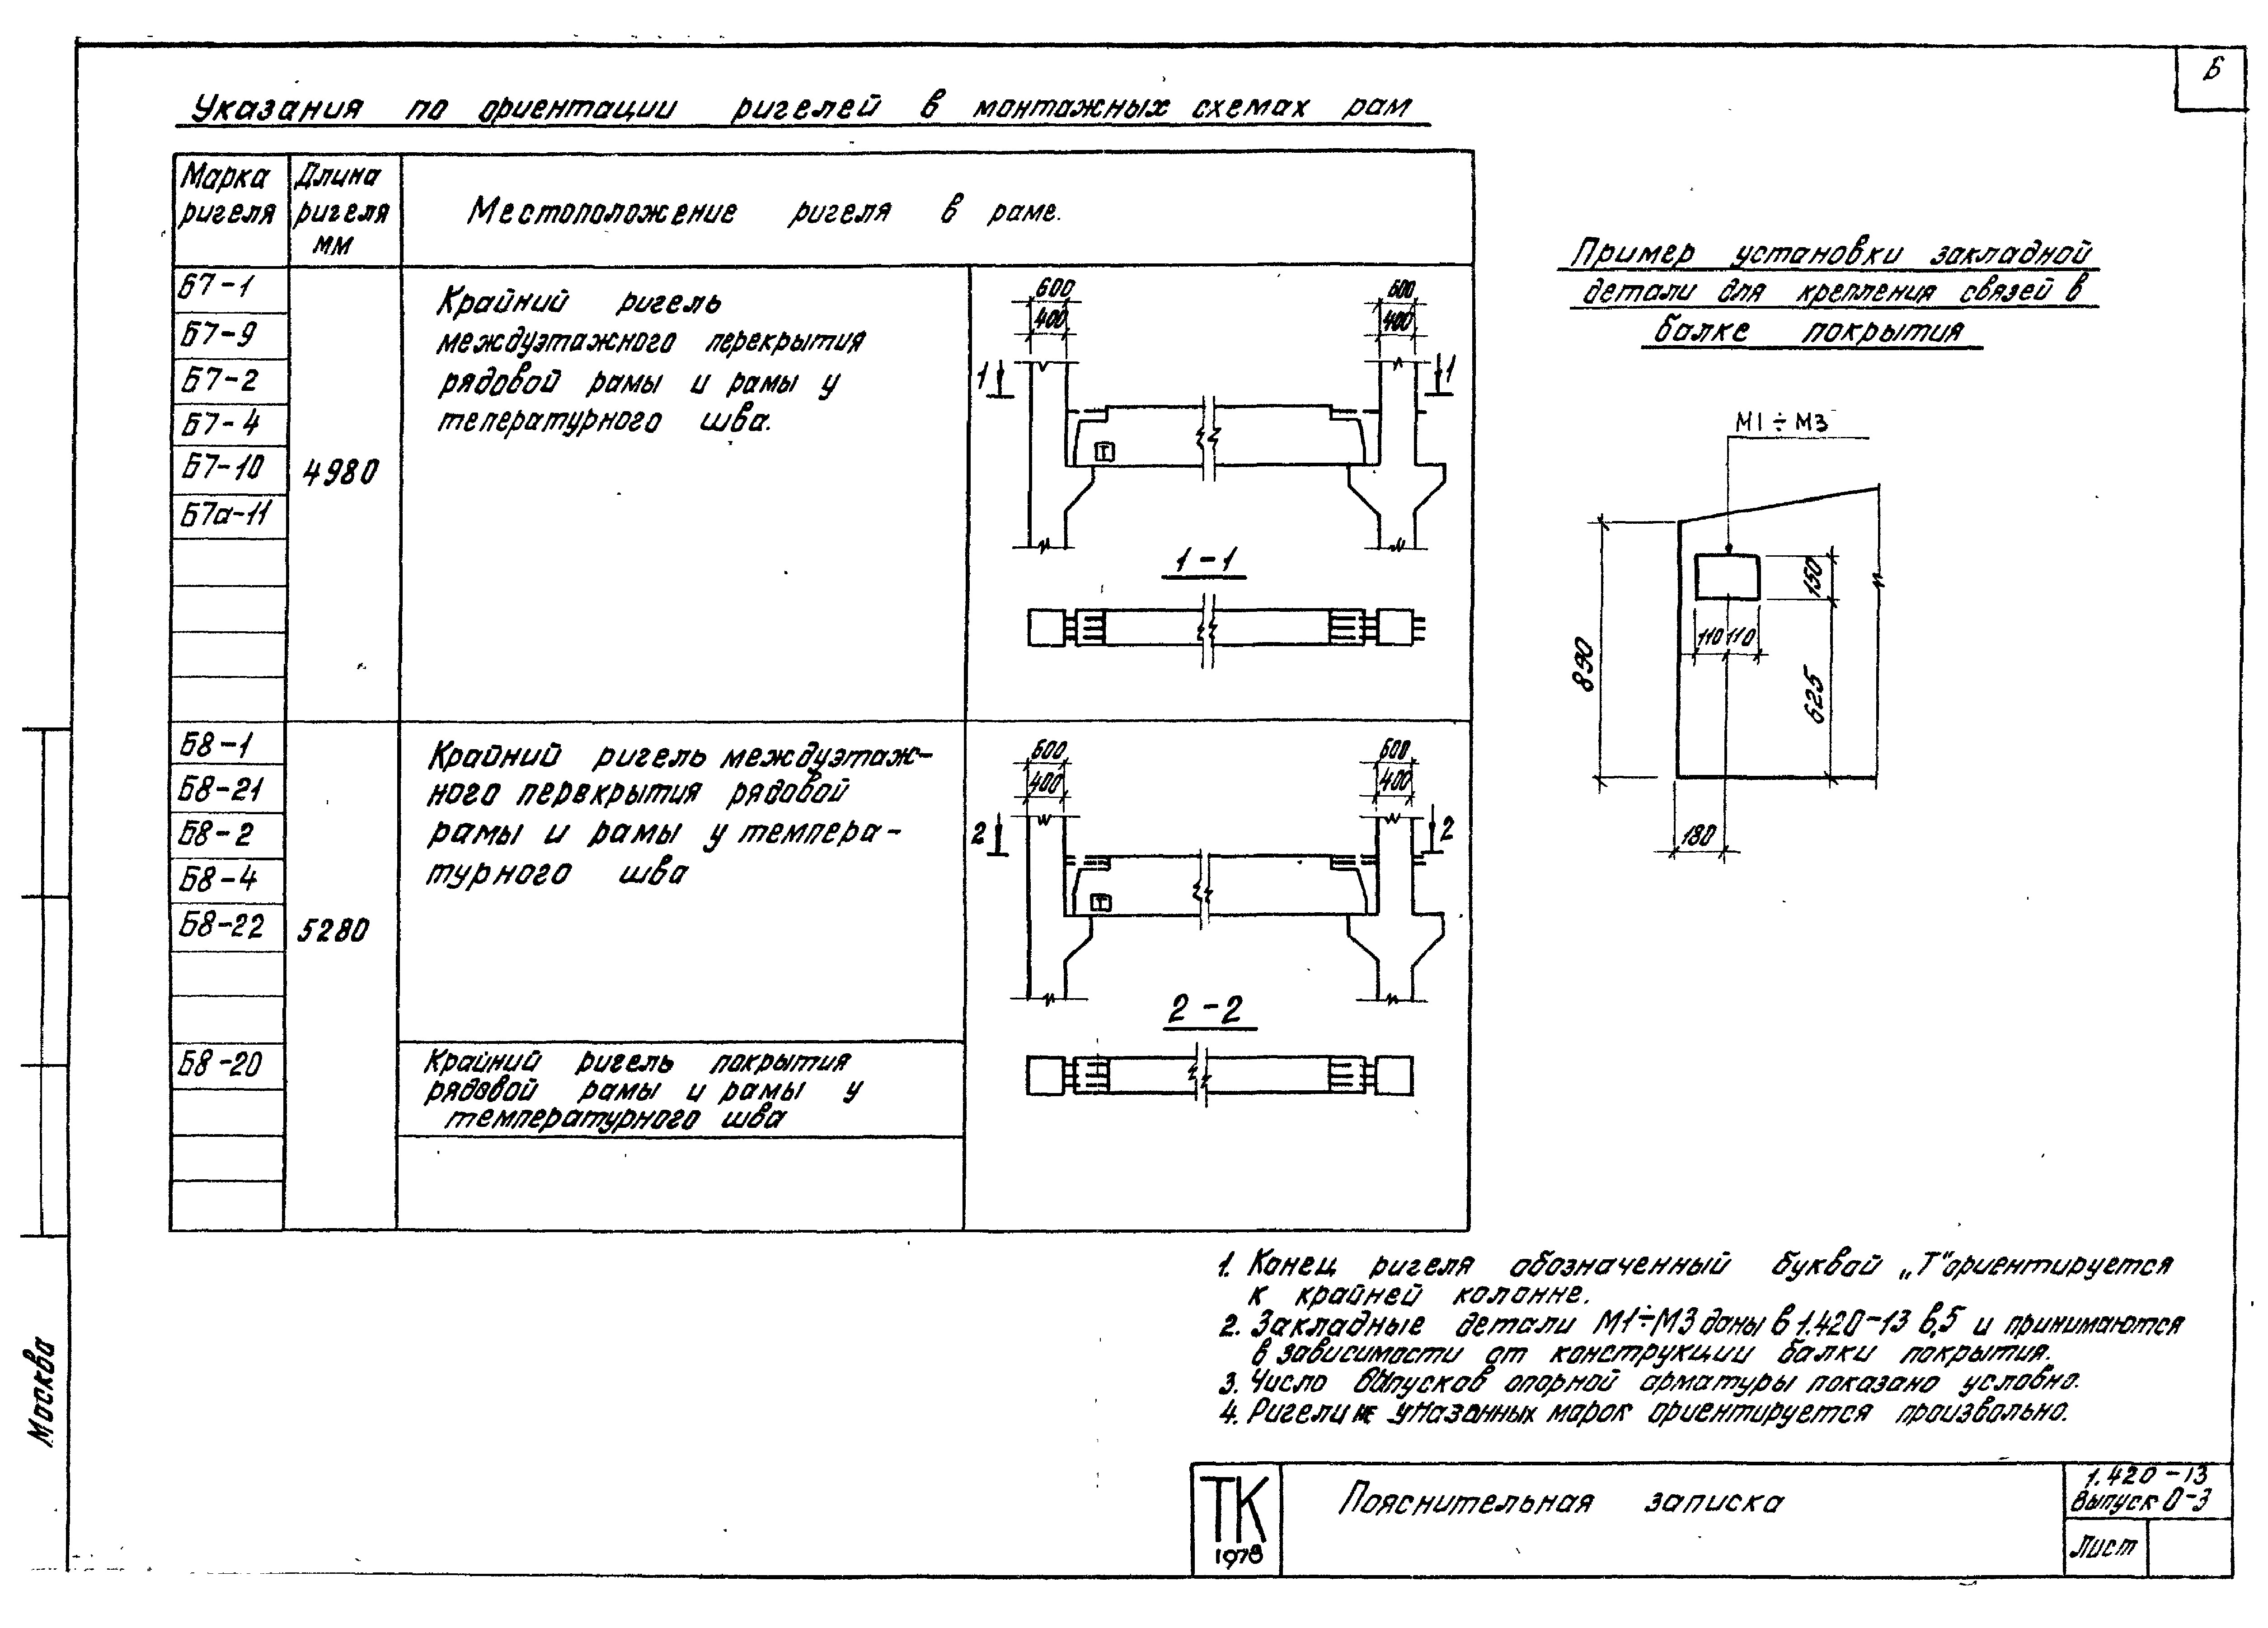 Б
Указания по ориентации ригелей в монтажных схемах рам
Марка ригеля
Длина ригеля мм
Местоположение ригеля в раме.
Б7-1
Б7-9
Б7-2
Б7-4
Б7-10
Б7а-11
4980
Крайний ригель
междуэтажного перекрытия
рядовой рамы и рамы у
температурного шва.
600
400
600
400
1
1
Т
1-1
Б8-1
Б8-21
Б8-2
Б8-4
Б8-22
Б8-20
5280
Крайний ригель междуэтаж-
ного перекрытия рядовой
рамы и рамы у темпера-
турного шва
Крайний ригель покрытия
рядовой рамы и рамы у
температурного шва
600
400
600
400
2
2
Т
2-2
Пример установки закладной
детали для крепления связей в
балке покрытия
М1÷М3
890
150
110 110
625
180
1. Конец ригеля обозначенный буквой „Т" ориентируется
к крайней колонне.
2. Закладные детали М1÷М3 даны в 1.420-13 в.5 и принимаются
в зависимости от конструкции балки покрытия.
3. Число выпусков опорной арматуры показано условно.
4. Ригели не указанных марок ориентируется произвольно.
Москва
ТК
1978
Пояснительная записка
1.420-13
Выпуск 0-3
Лист